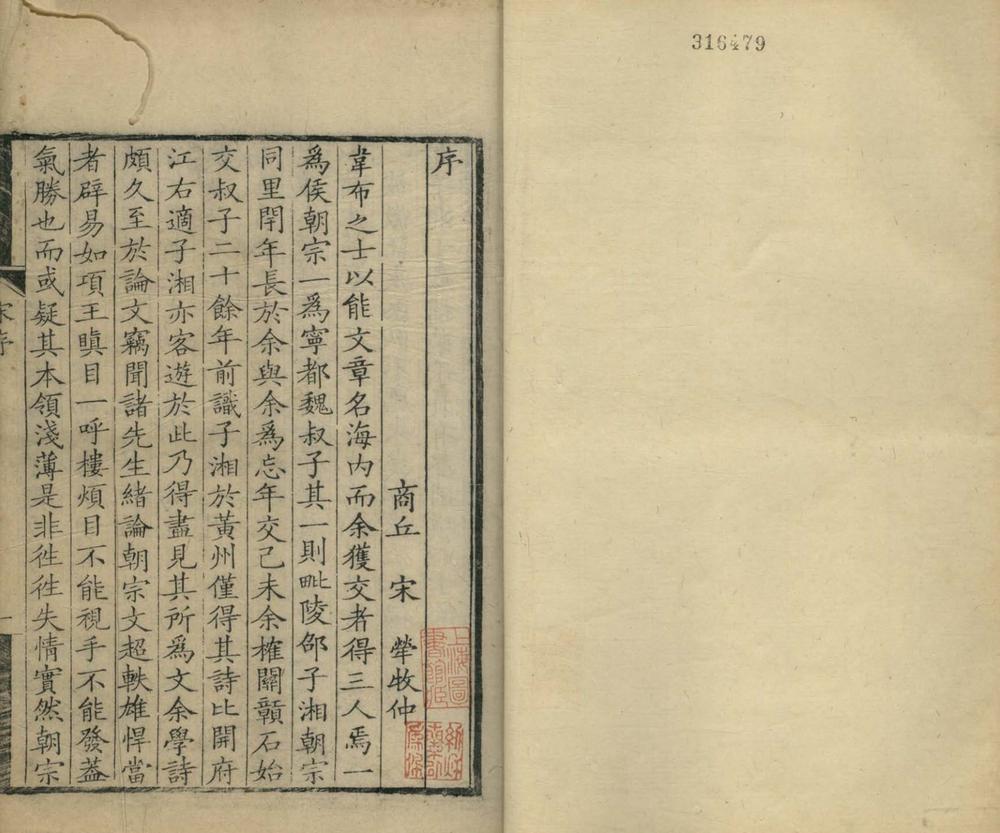 316479
序
商丘 宋犖牧仲
韋布之士以能文章名海内而余獲交者得三人焉一
爲侯朝宗一爲寧都魏叔子其一則毗陵邵子湘朝宗
同里閈年長於余與余爲忘年交己未余榷關贛石始
交叔子二十餘年前識子湘於黃州僅得其詩比開府
江右適子湘亦客遊於此乃得盡見其所爲文余學詩
頗久至於論文竊聞諸先生緒論朝宗文超軼雄悍當
者辟易如項王瞋目一呼樓煩目不能視手不能發葢
氣勝也而或疑其本領淺薄是非徃徃失情實然朝宗
宋序
一